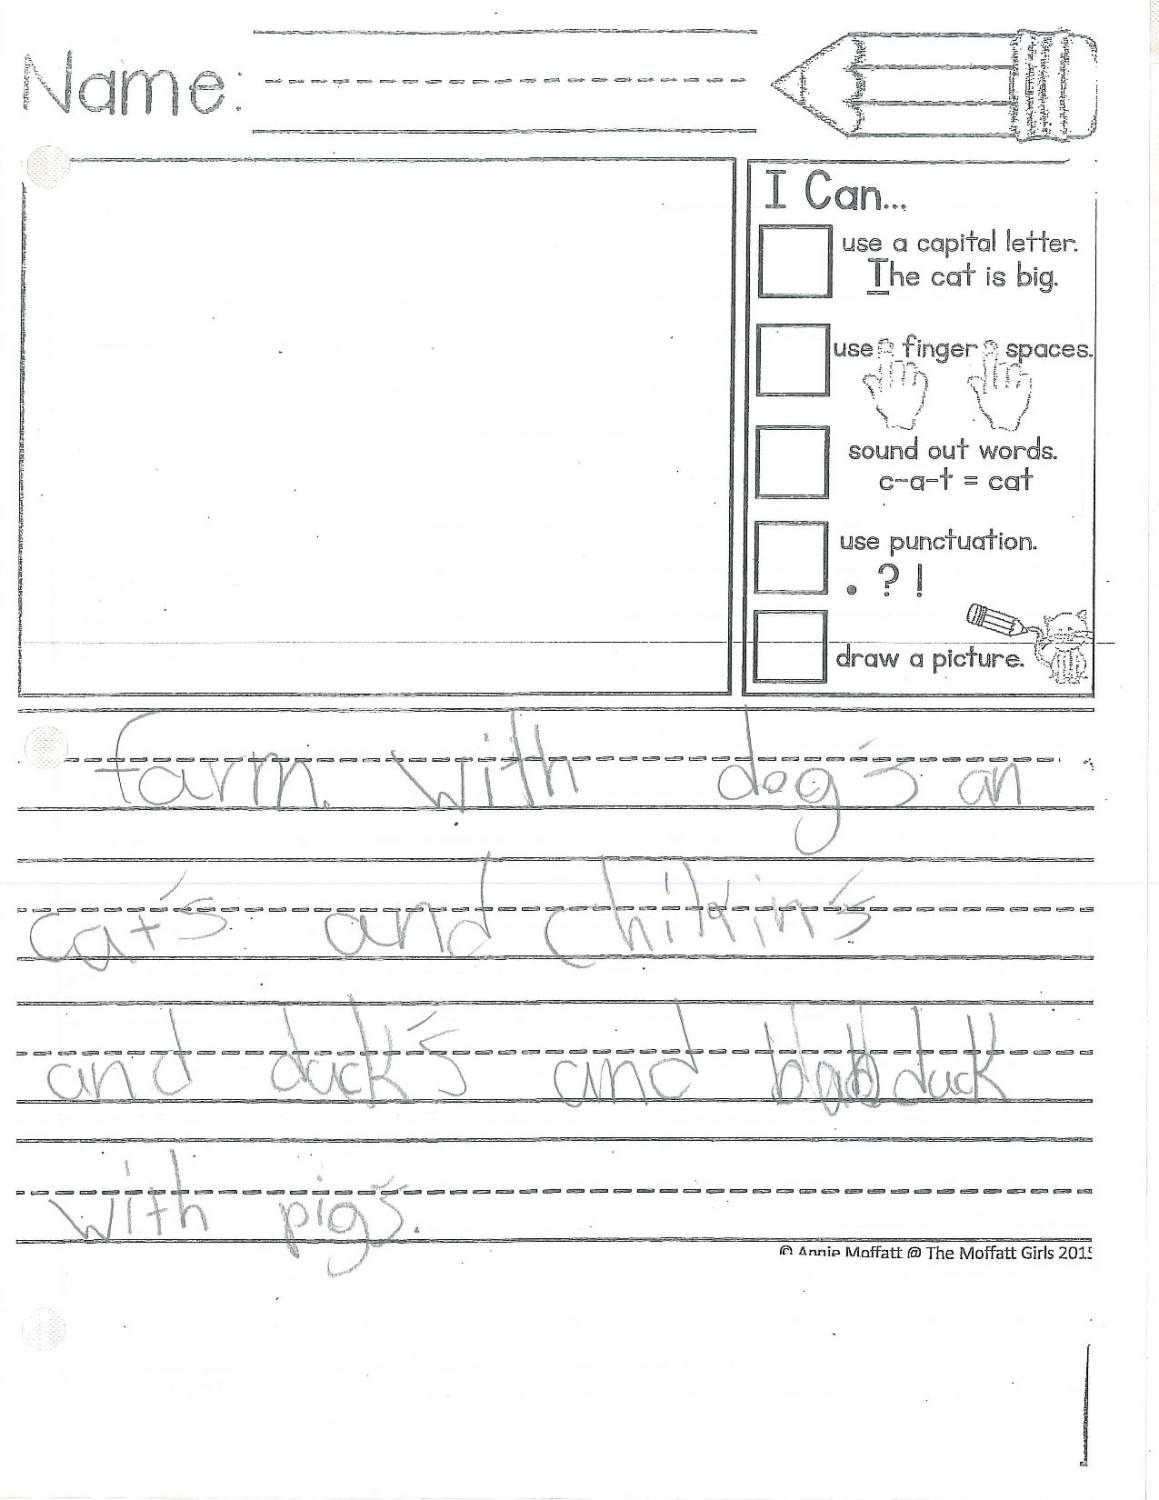 Name:
I Can...
use a capital letter.
The cat is big.
use finger spaces.
sound out words.
c-a-t = cat
use punctuation.
. ? !
draw a picture.
farm with dog's an
cat's and chitkin's
and duck's and duck
with pig's.
© Annie Moffatt @ The Moffatt Girls 2015